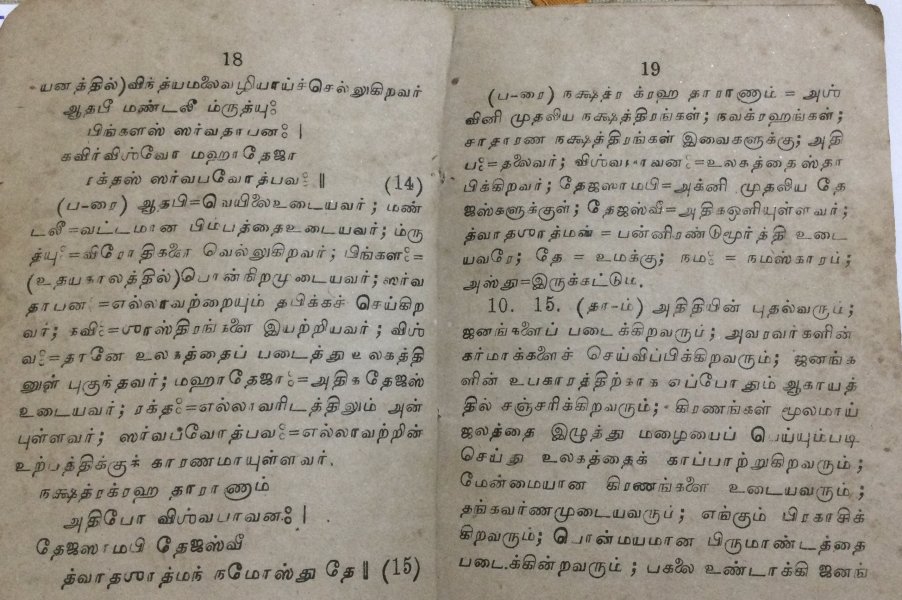 18
யனத்தில்)விந்த்யமலைவழியாய்ச்செல்லுகிறவர்
ஆதபீ மண்டலீ ம்ருத்யுஃ
பிங்களஸ் ஸர்வதாபனஃ |
கவிர்விஶ்வோ மஹாதேஜா
ரக்தஸ் ஸர்வபவோத்பவஃ ‖ (14)
(ப-ரை) ஆதபி=வெயிலைஉடையவர்; மண்
டலீ=வட்டமான பிம்பத்தைஉடையவர்; ம்ரு
த்யுஃ=விரோதிகளை வெல்லுகிறவர்; பிங்களஃ=
(உதயகாலத்தில்)பொன்நிறமுடையவர்; ஸர்வ
தாபன =எல்லாவற்றையும் தபிக்கச் செய்கிற
வர்; கவிஃ=ஶாஸ்திரங்களை இயற்றியவர்; விஶ்
வஃ=தானே உலகத்தைப் படைத்து உலகத்தி
னுள் புகுந்தவர்; மஹாதேஜாஃ=அதிகதேஜஸ்
உடையவர்; ரக்தஃ=எல்லாவரிடத்திலும் அன்
புள்ளவர்; ஸர்வபவோத்பவஃ=எல்லாவற்றின்
உற்பத்திக்குக் காரணமாயுள்ளவர்.
நக்ஷத்ரக்ரஹ தாராணாம்
அதிபோ விஶ்வபாவனஃ |
தேஜஸாமபி தேஜஸ்வீ
த்வாதஶாத்மந் நமோஸ்து தே ‖ (15)
19
(ப-ரை) நக்ஷத்ர க்ரஹ தாராணாம் = அஶ்
வினி முதலிய நக்ஷத்திரங்கள்; நவக்ரஹங்கள்;
சாதாரண நக்ஷத்திரங்கள் இவைகளுக்கு; அதி
பஃ=தலைவர்; விஶ்வபாவனஃ=உலகத்தை ஸ்தா
பிக்கிறவர்; தேஜஸாமபி=அக்னி முதலிய தே
ஜஸ்களுக்குள்; தேஜஸ்வீ=அதிகஒளியுள்ளவர்;
த்வாதஶாத்மன் = பன்னிரண்டுமூர்த்தி உடை
யவரே; தே = உமக்கு; நமஃ = நமஸ்காரம்;
அஸ்து=இருக்கட்டும்.
10. 15. (தா-ம்) அதிதியின் புதல்வரும்;
ஜனங்களைப் படைக்கிறவரும்; அவரவர்களின்
கர்மாக்களைச் செய்விப்பிக்கிறவரும்; ஜனங்க
ளின் உபகாரத்திற்காக எப்போதும் ஆகாயத்
தில் சஞ்சரிக்கிறவரும்; கிரணங்கள் மூலமாய்
ஜலத்தை இழுத்து மழையைப் பெய்யும்படி
செய்து உலகத்தைக் காப்பாற்றுகிறவரும்;
மேன்மையான கிரணங்களை உடையவரும்;
தங்கவர்ணமுடையவரும்; எங்கும் பிரகாசிக்
கிறவரும்; பொன்மயமான பிருமாண்டத்தை
படைக்கின்றவரும்; பகலை உண்டாக்கி ஜனங்